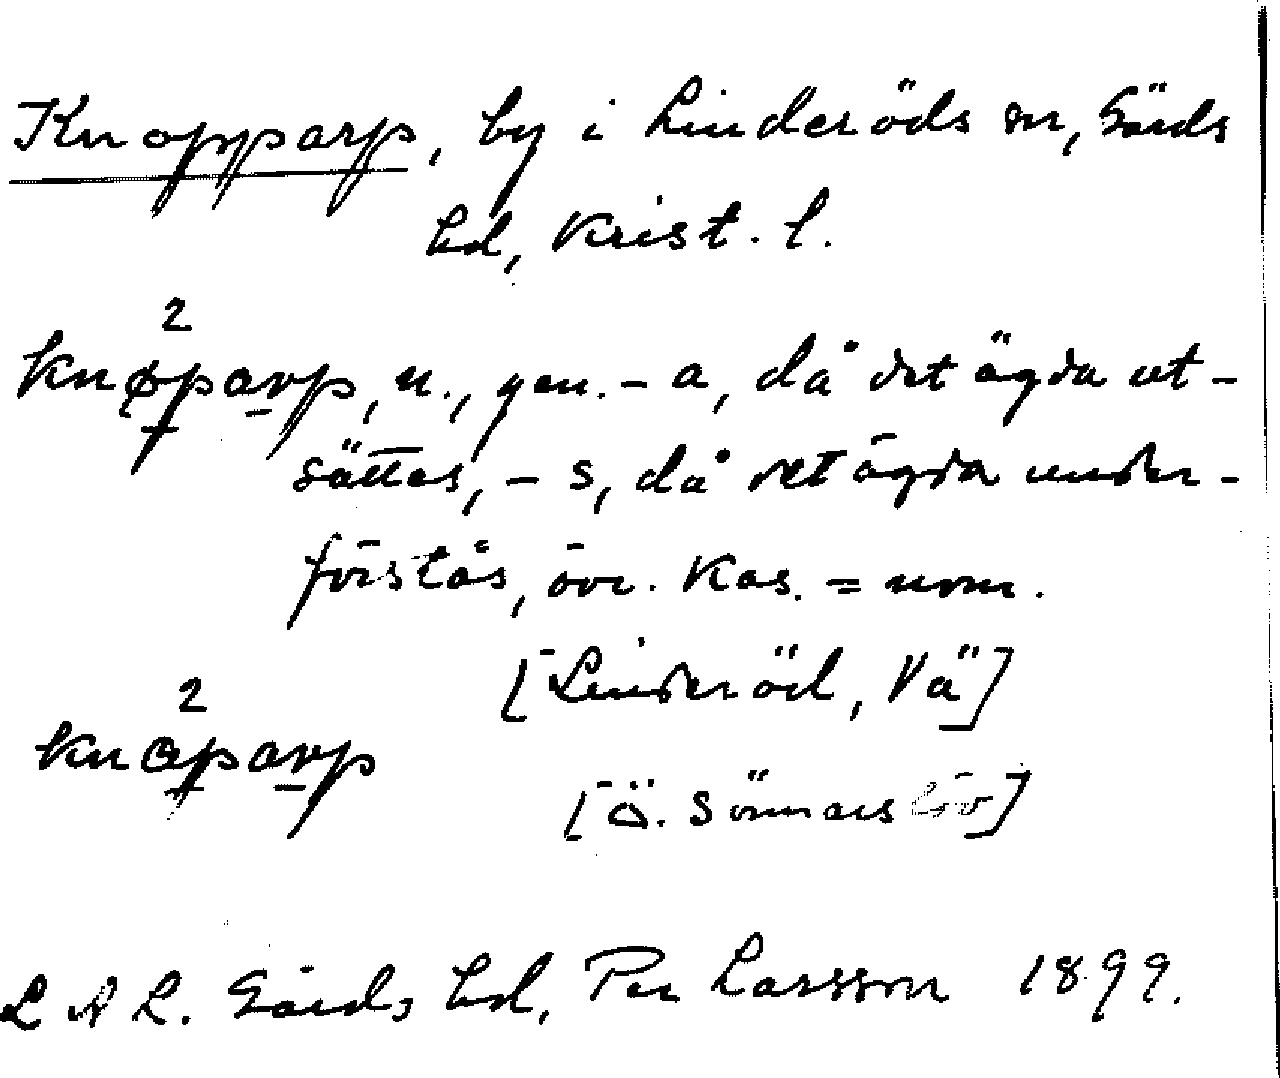 Knopparp, by i Linderöds sn, Gärds
hd, Krist. l.
2
knøparp, n., gen. - a, då det ägda ut-
sättes, - s, då det ägda under-
förstås, övr. kas. = nom.
[Linderöd, Vä]
2
knaparp
[Ö. Sönnarslöv]
L A L. Gärds hd, Per Larsson 1899.